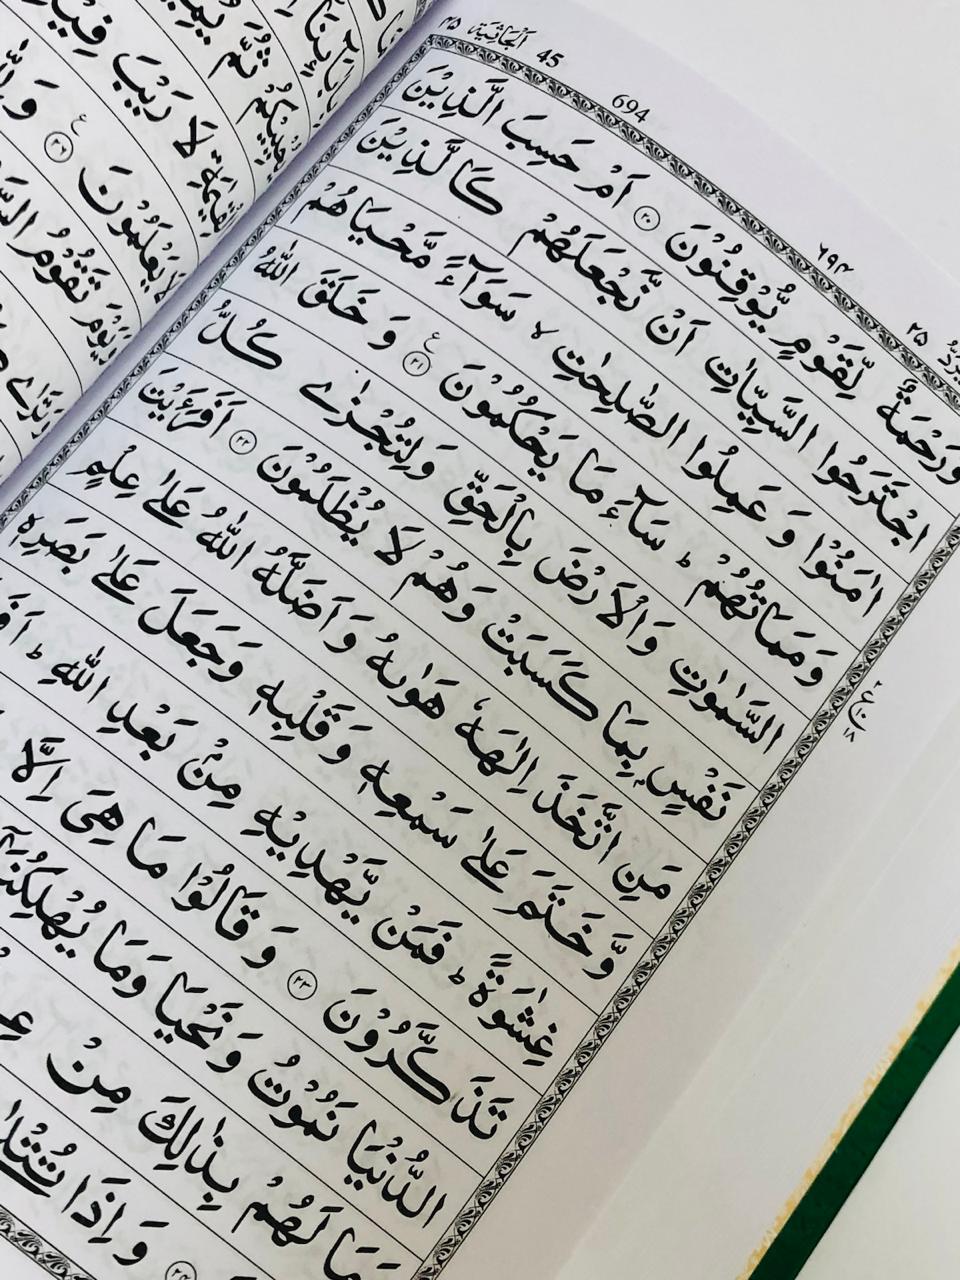 الجاثية ٤٥
45
694
٦٩٤
٢٥
وَرَحْمَةٌ لِّقَوْمٍ يُّوْقِنُوْنَ ۲۰ اَمْ حَسِبَ الَّذِيْنَ
اجْتَرَحُوا السَّيِّاٰتِ اَنْ نَّجْعَلَهُمْ كَالَّذِيْنَ
اٰمَنُوْا وَ عَمِلُوا الصّٰلِحٰتِ ۙ سَوَآءً مَّحْيَاهُمْ
وَمَمَاتُهُمْ ؕ سَآءَ مَا يَحْكُمُوْنَ ۲۱ ع وَ خَلَقَ اللّٰهُ
السَّمٰوٰتِ وَالْاَرْضَ بِالْحَقِّ وَلِتُجْزٰى كُلُّ
نَفْسٍۭ بِمَا كَسَبَتْ وَهُمْ لَا يُظْلَمُوْنَ ۲۲ اَفَرَءَيْتَ
مَنِ اتَّخَذَ اِلٰهَهٗ هَوٰىهُ وَاَضَلَّهُ اللّٰهُ عَلٰى عِلْمٍ
وَّخَتَمَ عَلٰى سَمْعِهٖ وَقَلْبِهٖ وَجَعَلَ عَلٰى بَصَرِهٖ
غِشٰوَةً ؕ فَمَنْ يَّهْدِيْهِ مِنْۢ بَعْدِ اللّٰهِ ؕ
تَذَكَّرُوْنَ ۲۳ وَ قَالُوْا مَا هِىَ اِلَّا
الدُّنْيَا نَمُوْتُ وَنَحْيَا وَمَا يُهْلِكُنَاۤ
مَا لَهُمْ بِذٰلِكَ مِنْ
وَ اِذَا تُتْلٰى
ثُمَّ
لَا رَيْبَ فِيْهِ
يَعْلَمُوْنَ ۲۶ ع
وَيَوْمَ تَقُوْمُ